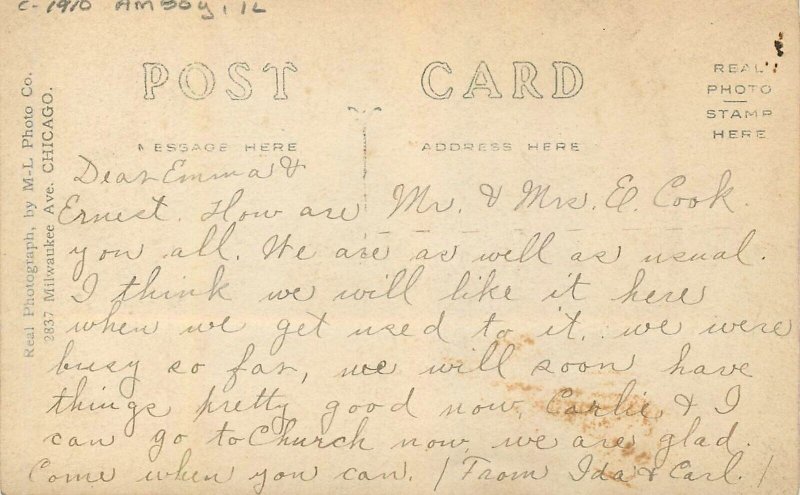 c-1910 Amboy, IL
POST CARD
REAL
PHOTO
STAMP
HERE
MESSAGE HERE
ADDRESS HERE
Real Photograph, by M-L Photo Co.
2837 Milwaukee Ave. CHICAGO.
Dear Emma &
Ernest. How are
Mr. & Mrs. E. Cook.
you all. We are as well as usual.
I think we will like it here
when we get used to it. we were
busy so far, we will soon have
things pretty good now, Carlie & I
can go to Church now, we are glad.
Come when you can. / From Ida & Carl. /